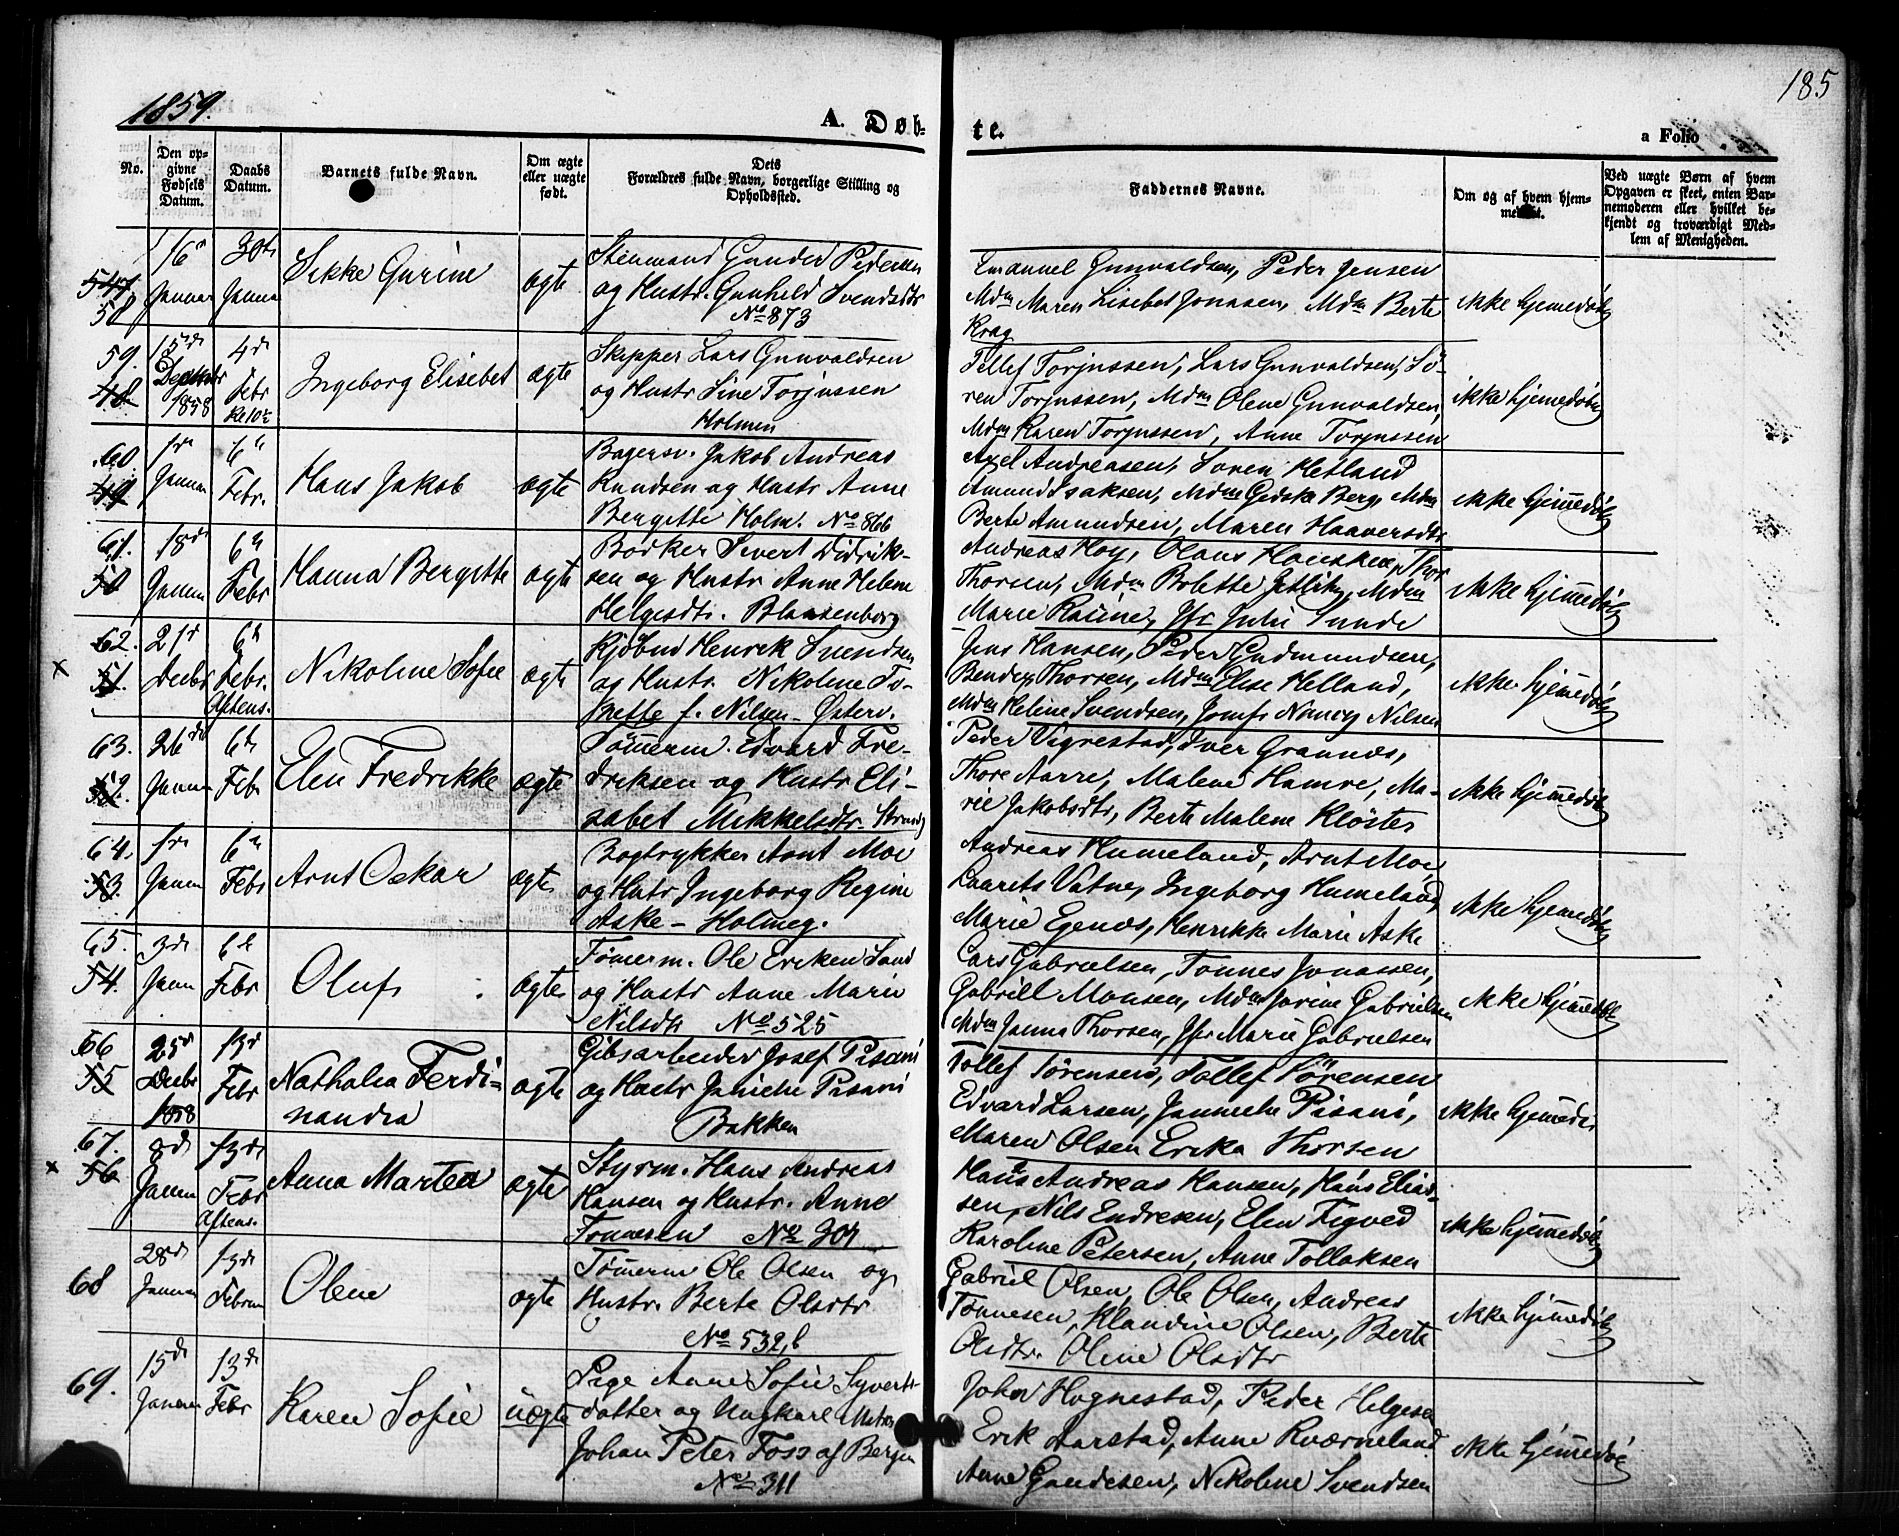 1859.
185
A. Døb-
te.
a Folio
No.
Den op-
givne
Fødsels
Datum.
Daabs
Datum.
Barnets fulde Navn.
Om ægte
eller uægte
født.
Dets
Forældres fulde Navn, borgerlige Stilling og
Opholdssted.
Faddernes Navne.
Om og af hvem hjem-
medøbt.
Ved uægte Børn af hvem
Opgaven er skeet, enten Bar-
nemoderen eller hvilket be-
kjendt og troværdigt Med-
lem af Menigheden.
58
16
Januar
30te
Janua
Sikke Gurine
ægte
Stenmand Gunder Pedersen
og Hustr. Gunhild Svendsdtr
No 873
Emanuel Gunvaldsen, Peder Jensen
Mdm Maren Lisebet Jonasen, Mdm Berte
Krag
ikke hjemedøbt
59.
48.
15de
Decembr
1858
4de
Febr
Kl 10½
Ingeborg Elisebet
ægte
Skipper Lars Gunvaldsen
og Hustr Sine Torjussen
Holmen
Tellef Torjussen, Lars Gunvaldsen, Sö-
ren Torjussen, Mdm Olene Gunvaldsen,
Mdm Karen Torjussen, Anne Torjussen
ikke hjemedøbt
60.
49
1ste
Januar
6te
Febr.
Hans Jakob
ægte
Bagersv. Jakob Andreas
Knudsen og Hustr Anne
Bergitte Holm. No 866
Axel Andreasen, Soren Hetland
Amund Isaksen, Mdm Gidske Berg, Mdm
Berte Amundsen, Maren Haaversdtr
ikke hjemedøbt
61.
50
18de
Januar
6te
Febr
Hanna Bergitte
ægte
Bödker Sivert Didrik-
sen og Hustr Anne Helene
Helgesdtr. Blaasenborg
Andreas Hoy, Olaus Hausken, Thor
Thorsen, Mdm Bolette Jetlitz, Mdm
Marie Racine, Jfr Julie Sunde
ikke hjemedøbt
62.
51.
21de
Decbr
6te
Febr.
Aftens.
Nikoline Sofie
ægte
Kjöbmd Henrik Svendsen
og Hustr Nikoline To-
nette f. Nilsen – Österv.
Jens Hansen, Peder Gudmundsen,
Bendix Thorsen, Mdm Elise Helland,
Mdm Heline Svendsen, Jomfr Nancy Nilsen
ikke hjemedøbt
63.
52.
26de
Januar
6te
Febr
Elen Fredrikke
ægte
Tömmerm. Edvard Fre-
driksen og Hustr Eli-
sabet Mikkelsdtr.
Peder Vigrestad, Iver Grannæs,
Thore Aarre, Malene Hamre, Ma-
rie Jakobsdtr, Berte Malene Klöster
ikke hjemedøbt
64.
53.
1ste
Januar
6te
Febr
Arnt Oskar
ægte
Bogtrykker Arnt Moe
og Hustr Ingeborg Regine
Aske – Holmeg.
Andreas Humeland, Arnt Moe,
Laurits Vatne, Ingeborg Humeland
Marie Egenæs, Henrikke Marie Aske
ikke hjemedøbt
65.
54.
3de
Janu
6te
Febr
Oluf
ægte
Tömerm. Ole Eriken Sand
og Hustr Anne Marie
Nilsdtr No 525
Lars Gabrielsen, Tonnes Jonassen,
Gabriell Monsen, Mdm Jorine Gabrielsen
Mdm Janna Thorsen, Jfr Marie Gabrielsen
ikke hjemedøbt
66
55
25de
Decbr
1858
13de
Febr
Nathalia Ferdi-
nandra
ægte
Gibsarbeider Josef Pisani
og Hustr Janicke Pisani
Bakken
Tollef Sörensen, Tollef Sörensen
Edvard Larsen, Jannicke Pisani,
Maren Olsen Erika Thorsen
ikke hjemedø
67.
56
8de
Januar
13de
Febr
Aftens.
Anna Martea
ægte
Styrm. Hans Andreas
Hansen og Hustr. Anne
Tonnesen No 301
Hans Andreas Hansen, Hans Elias-
sen, Nils Endresen, Elen Tegved
Karoline Petersen, Anne Tollaksen
ikke hjemedøbt
68
28de
Januar
13de
Februar
Olene
ægte
Tömmerm Ole Olsen og
Hustr. Berte Olsdtr
No 532, b
Gabriel Olsen, Ole Olsen, Andreas
Tönnesen, Klandine Olsen, Berte
Olsdtr. Oline Olsdtr
ikke hjemedøbt
69.
15de
Januar
13de
Febr
Karen Sofie
uægte
Pige Anne Sofie Syverts-
datter og Ungkarl
Johan Peter Foss af Bergen
No 311
Johan Hognestad, Peder Helgesen
Erik Aarstad, Anne Kværneland
Anne Gaudesen, Nikoline Svendsen
ikke hjemedø